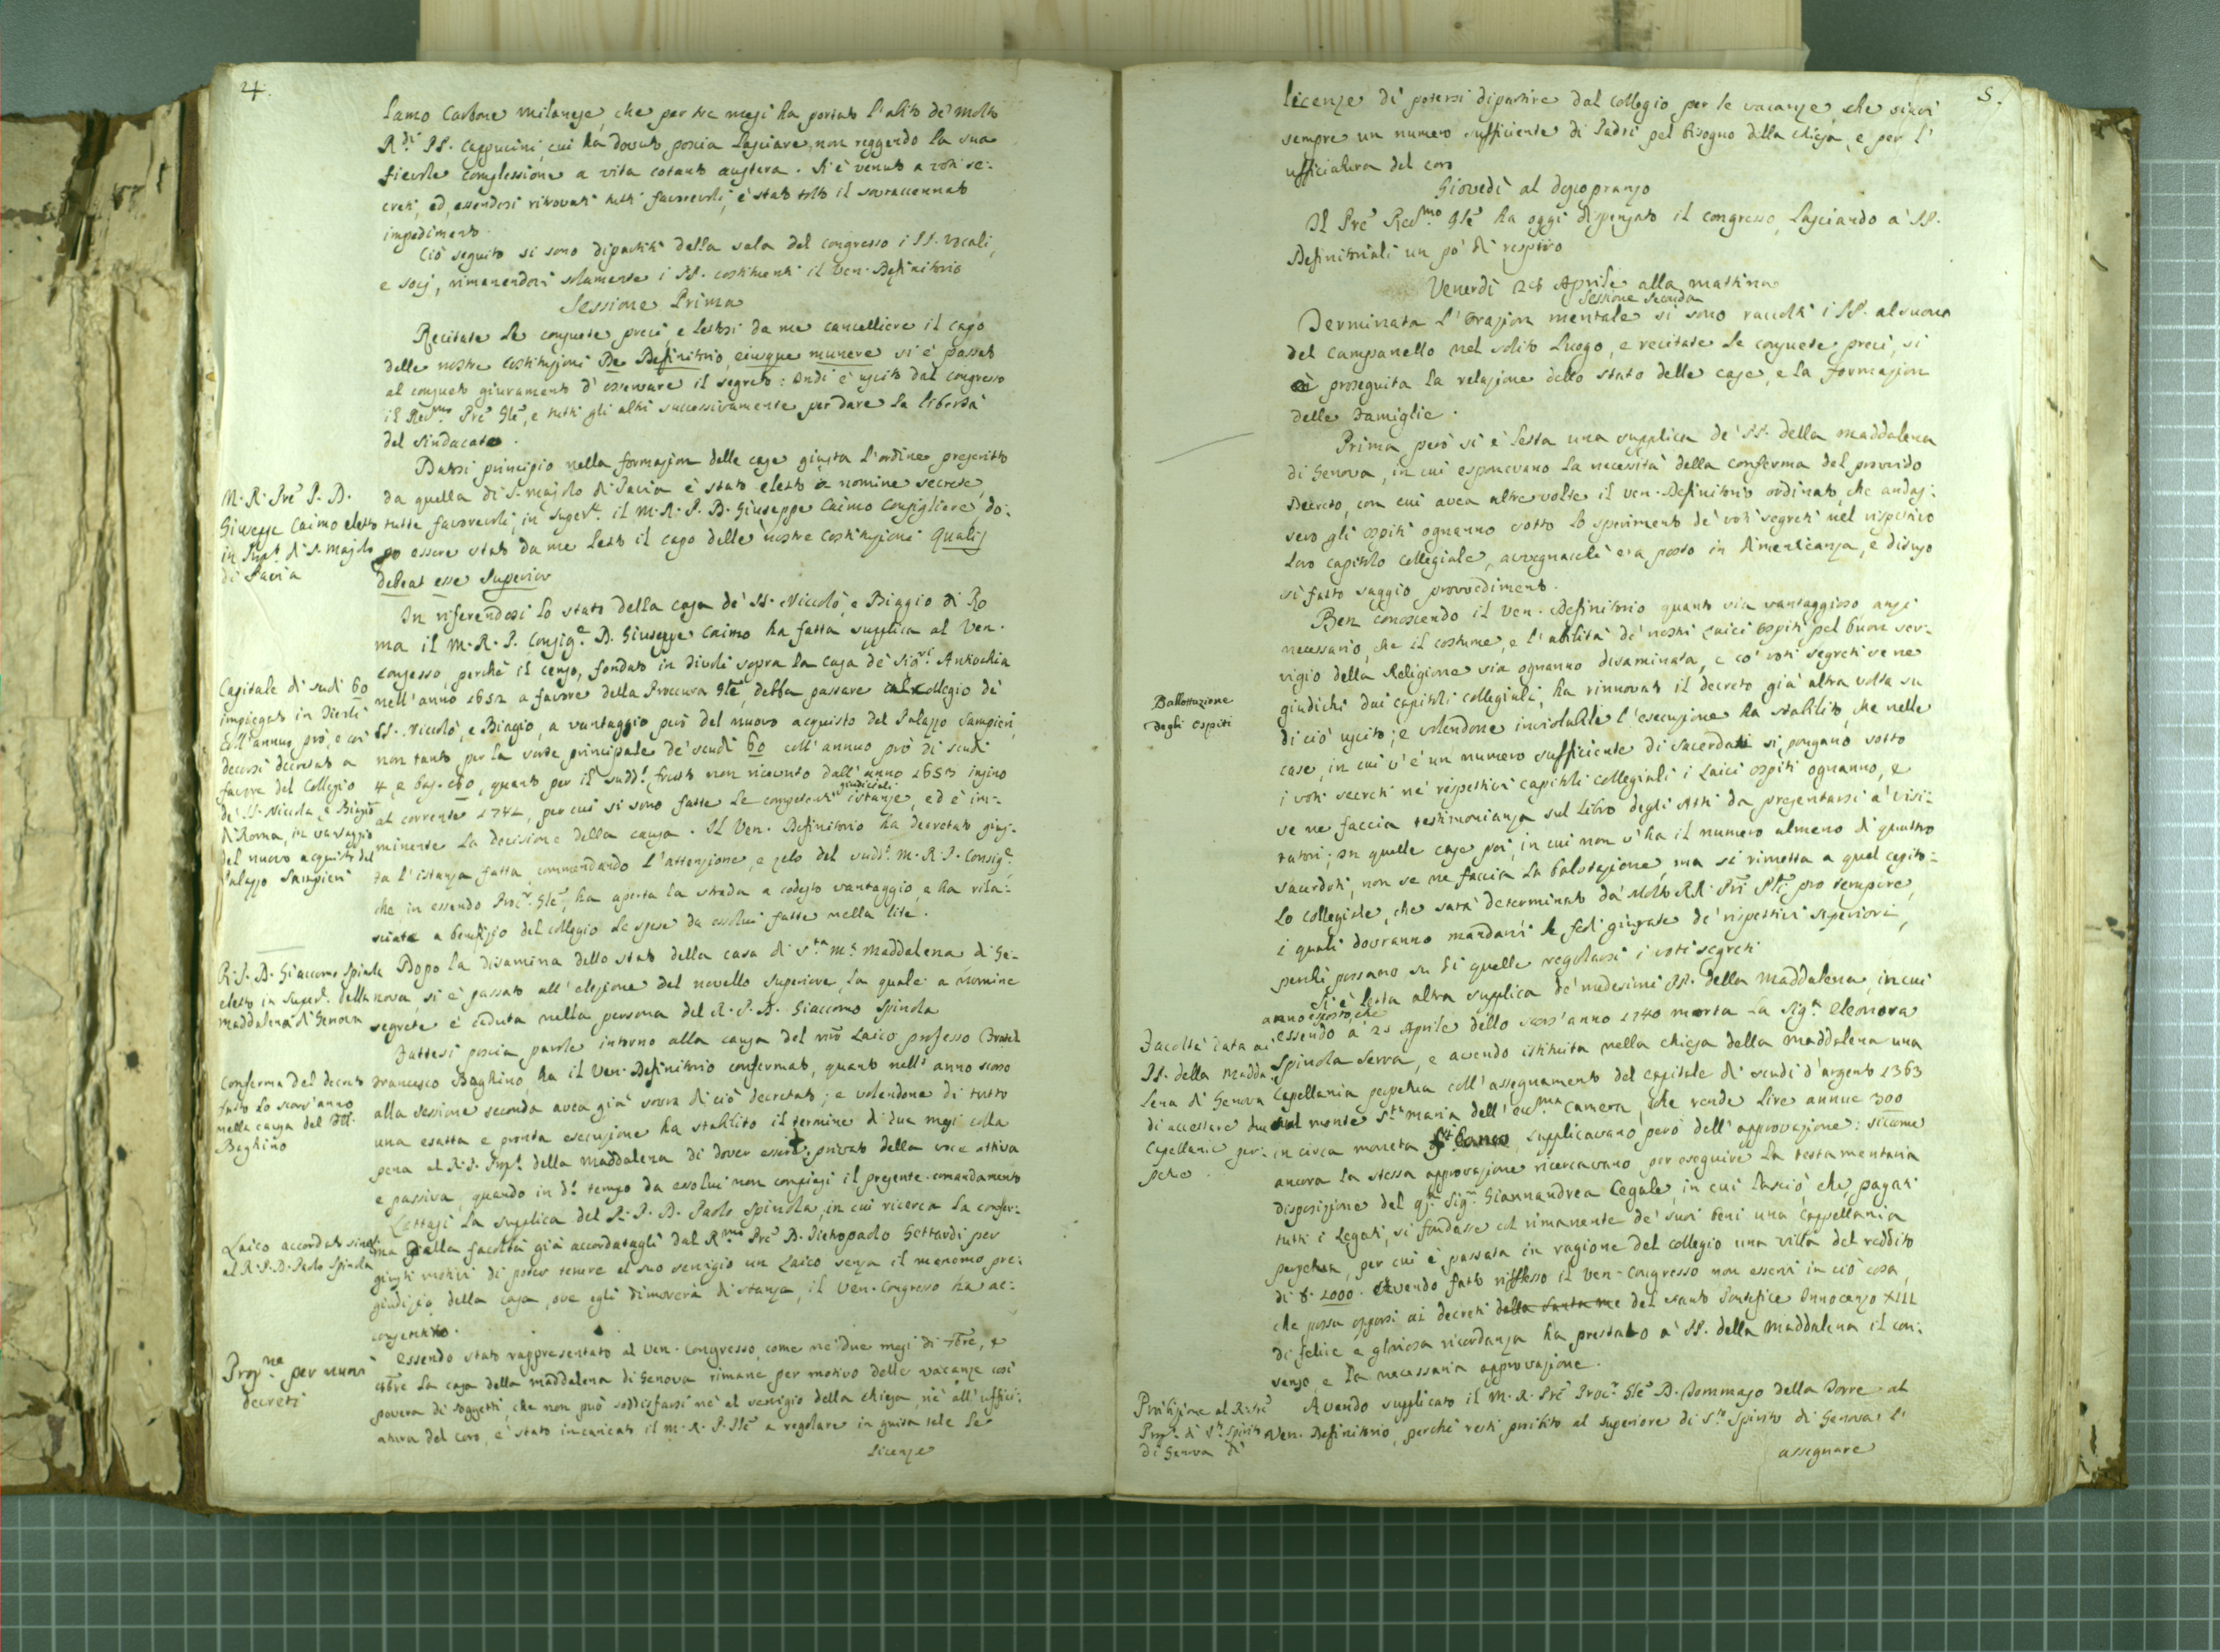 4.
lamo Carbone milanese, che per tre mesi ha portato l'abito de' molto
R.di PP. Cappucini, cui ha dovuto poscia lasciare, non reggendo la sua
fievole complessione a vita cotanto austera. Si è venuto a voti se:
creti, ed, essendosi ritrovati tutti favorevoli, è stato tolto il sovraccennato
impedimento.
Ciò seguito si sono dipartiti della sala del congresso i PP. vocali,
e socj, rimanendovi solamente i PP. costituenti il Ven. Definitorio
Sessione Prima
Recitate le consuete preci, e lettosi da me cancelliere il capo
delle nostre Costituzioni De Definitorio, eiusque munere si è passato
al consueto giuramento d'osservare il segreto: Indi è uscito dal congresso
il Rev.mo Pre Gle, e tutti gli altri successivamente per dare la libertà
del sindacato.
Datosi principio nella formazion delle case giusta l'ordine prescritto
da quella di S. Majolo di Pavia è stato eletto a nomine secrete,
tutte favorevoli, in Super.e il M. R. P. D. Giuseppe Caimo Consigliere do:
po essere stato da me letto il capo delle nostre Costituzioni Qualis
debeat esse Superior
M. R. Pre P. D.
Giuseppe Caimo eletto
in Prep.to di S. Majolo
di Pavia
In riferendosi lo stato della casa de' SS. Niccolò, e Biaggio di Ro
ma il M. R. P. Consig.e D. Giuseppe Caimo ha fatta supplica al Ven.
Congresso, perchè il censo, fondato in Tivoli sopra la casa de' Sig.ri Antochia
nell'anno 1652 a favore della Proccura Gle, debba passare al Collegio de'
SS. Niccolò, e Biagio, a vantaggio però del nuovo acquisto del Palazzo Sampieri,
non tanto per la sorte principale de' scudi 60 coll'annuo prò di scudi
4, e baj. 80, quanto per il sudd.o frutto non ricevuto dall'anno 1653 insino
al corrente 1741, per cui si sono fatte le competenti giudiciali istanze, ed è im:
minente la decisione della causa. Il Ven. Definitorio ha decretato gius:
ta l'istanza fatta, commendando l'attenzione, e zelo del sudd.o M. R. P. Consig.e
che in essendo Proc.r Gle, ha aperta la strada a codesto vantaggio, e ha rila:
sciate a benefizio del collegio le spese da essolui fatte nella lite.
Capitale di scudi 60
impiegato in Tivoli
coll'annuo prò, e coi
decorsi decretato a
favore del Collegio
de' SS. Nicola, e Biagio
di Roma, in vantaggio
del nuovo acquisto del
Palazzo Sampieri
Dopo la disamina dello stato della casa di S.ta M.a Maddalena di Ge:
nova, si è passato all'elezione del novello Superiore, la quale a nomine
segrete è caduta nella persona del R. P. D. Giaccomo Spinola
R. P. D. Giaccomo Spinola
eletto in Super.e della
Maddalena di Genova
Fattesi poscia parole intorno alla causa del nro Laico professo Fratel
Francesco Baghino, ha il Ven. Definitorio confermato, quanto nell'anno scorso
alla sessione seconda avea già sovra di ciò decretato; e volendone di tutto
una esatta e pronta esecuzione ha stabilito il termine di due mesi colla
pena al R. P. Prep.to della Maddalena di dover essere privato della voce attiva
e passiva, quando in d.o tempo da essolui non compiasi il presente comandamento
Conferma del decreto
fatto lo scors'anno
nella causa del Fll.
Baghino
Lettasi la supplica del R. P. D. Paolo Spinola, in cui ricerca la confer:
ma dalla facoltà già accordatagli dal R.mo Pre D. Pietropaolo Gottardi per
giusti motivi di poter tenere al suo servigio un Laico senza il menomo pre:
giudizio della casa, ove egli dimoverà di stanza, il Ven. Congresso ha ac:
consentito.
Laico accordato
al R. P. D. Paolo Spinola
Essendo stato rappresentato al Ven. Congresso, come ne' due mesi di 7bre, e
8bre la casa della Maddalena di Genova rimane per motivo delle vacanze così
povera di soggetti, che non può soddisfarsi nè al servigio della chiesa, nè all'uffici:
atura del coro, è stato incaricato il M. R. P. Gle a regolare in guisa tale le
licenze
Prop.ne per nuovi
decreti
5.
licenze di potersi dipartire dal Collegio per le vacanze, che siavi
sempre un numero sufficiente di Padri pel bisogno della chiesa, e per l'
ufficiatura del coro
Giovedì al dopopranzo
Il Pre Rev.mo Gle ha oggi dispensato il congresso, lasciando a' PP.
Definitoriali un po' di respiro
Venerdì 28 Aprile alla mattina
Sessione Seconda
Terminata l'orazion mentale si sono raccolti i PP. al suono
del Campanello nel solito luogo, e recitate le consuete preci, si
è proseguita la relazione dello stato delle case, e la formazion
delle Famiglie.
Prima però si è letta una supplica de' PP. della Maddalena
di Genova, in cui esponevano la necessità della conferma del provvido
Decreto, con cui avea altre volte il Ven. Definitorio ordinato, che andas:
sero gli ospiti ognanno sotto lo sperimento de' voti segreti nel rispettivo
loro capitolo collegiale, avvegnacchè era posto in dimenticanza, e disuso
sì fatto saggio provvedimento.
Ben conoscendo il Ven. Definitorio quanto sia vantaggioso anzi
necessario, che il costume, e l'abilità de' nostri Laici Ospiti pel buon ser:
vigio della Religione sia ognanno disaminata, e co' voti segreti se ne
giudichi dai capitoli collegiali, ha rinnovato il decreto già altra volta su
di ciò uscito; e volendone inviolabile l'esecuzione ha stabilito, che nelle
case, in cui v'è un numero sufficiente di sacerdoti si pongano sotto
i voti secreti ne' rispettivi capitoli collegiali i Laici ospiti ognanno, e
se ne faccia testimonianza sul libro degli Atti da presentarsi a' visi:
tatori; in quelle case poi, in cui non v'ha il numero almeno di quattro
sacerdoti, non se ne faccia la balotazione, ma si rimetta a quel capito:
lo collegiale, che sarà determinato da' Molto RR. Pri Pli pro tempore,
i quali dovranno mandarvi le fedi giurate de' rispettivi superiori,
perchè possano su di quelle regolarsi i voti segreti
Ballottazione
degli Ospiti
Si è letta altra supplica de' medesimi PP. della Maddalena, in cui
anno esposto, che
essendo a' 21 Aprile dello scors'anno 1740 morta la Sig.a Eleonora
Spinola Serra, e avendo istituita nella chiesa della Maddalena una
Capellania perpetua coll'assegnamento del capitale di scudi d'argento 1363
sul monte S.ta Maria dell'ecc.ma Camera, che rende lire annue 300
in circa moneta supplicavano però dell'approvazione: siccome
ancora la stessa approvazione ricercavano per eseguire la testamentaria
disposizione del q. Sig.r Giannandrea Cegale, in cui lasciò, che, pagati
tutti i legati, si fondasse col rimanente de' suoi beni una Cappellania
perpetua, per cui è passata in ragione del collegio una villa del reddito
di 8. 1000. Avendo fatto riflesso il Ven. Congresso non esservi in ciò cosa,
che possa opporsi ai decreti della santa me del santo Pontefice Innocenzo XIII
di felice e gloriosa ricordanza ha prestato a' PP. della Maddalena il con:
senso, e la necessaria approvazione.
Facoltà data ai
PP. della Madda:
lena di Genova
di accettare due
Capellanie per:
petue
Avendo supplicato il M. R. Pre Proc.r Gle D. Tommaso della Torre al
Ven. Definitorio, perchè resti proibito al Superiore di S.to Spirito di Genova l'
assegnare
Proibizione al R. Pre
Prep.to di S.to Spirito
di Genova di